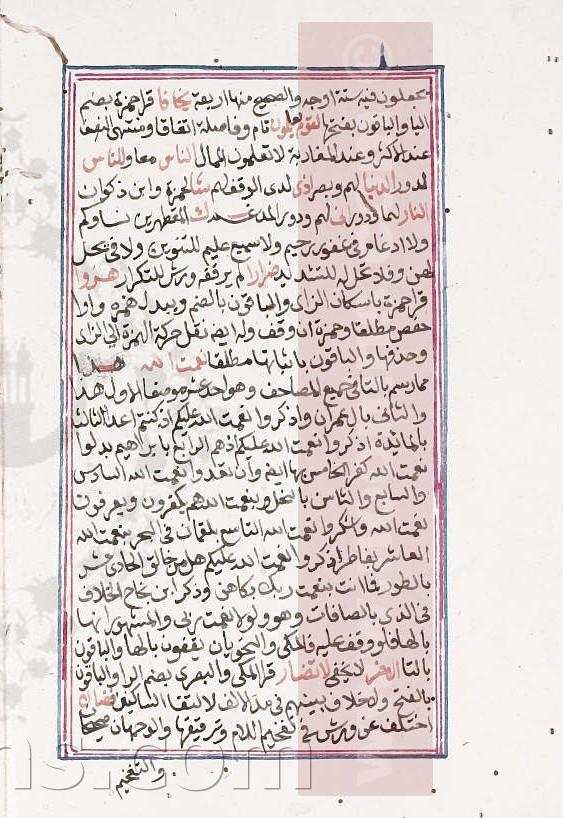 يجعلون فيه ستة اوجه والصحيح منها اربعة يخافا قرا حمزة بضم
اليا والباقون بفتحها تام وفاصلة اتفاقا ومنتهى النصف
عند الاكثر وعند المغاربة لا تعلمون الممال الناس معا وللناس
لدور الدنيا لهم وبصر لدى الوقف لهم لحمزة وابن ذكوان
النار لهما ودور لهم ودور المدغم
ولا ادغام في غفور رحيم ولا سميع عليم للتنوين ولا في يحل
لهن وفلا تحل له للتشديد ضرارا لم يرققه ورش للتكرار هزوا
قرا حمزة باسكان الزاي والباقون بالضم ويبدل همزه واوا
حفص مطلقا وحمزة ان وقف وله ايضا نقل حركة الهمزة الى الزاي
وحذفها والباقون باثباتها مطلقا نعمت الله هذا
مما رسم بالتا في جميع المصاحف وهو احد عشر موضعا الاول هذا
والثاني بال عمران واذكروا نعمت الله عليكم اذ كنتم اعدا الثالث
بالمائدة اذكروا نعمت الله عليكم اذ هم الرابع بابراهيم بدلوا
نعمت الله كفرا الخامس بها ايضا وان تعدوا نعمت الله السادس
والسابع والثامن بالنحل وبنعمت الله هم يكفرون ويعرفون
نعمت الله واشكروا نعمت الله التاسع بلقمان في البحر بنعمت الله
العاشر بفاطر اذكروا نعمت الله عليكم هل من خالق الحادي عشر
بالطور فما انت بنعمت ربك بكاهن وذكر ابن نجاح الخلاف
في الذي بالصافات وهو ولولا نعمت ربي والمشهور انها
بالها فلو وقف عليه فالمكي والنحويان يقفون بالها والباقون
بالتا لا يخفى لا تضار قرا المكي والبصري بضم الرا والباقون
بالفتح ولا خلاف بينهم في مد الالف لالتقا الساكنين فصالا
اختلف عن ورش في تفخيم اللام وترقيقها والوجهان صحيحان
والتفخيم